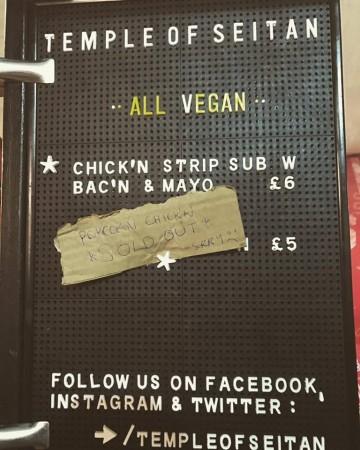 TEMPLE OF SEITAN
·· ALL VEGAN ··
CHICK'N STRIP SUB W
BAC'N & MAYO £6
POPCORN CHICKN
SOLD OUT
SRRY!!
£5
FOLLOW US ON FACEBOOK,
INSTAGRAM & TWITTER :
→/TEMPLEOFSEITAN